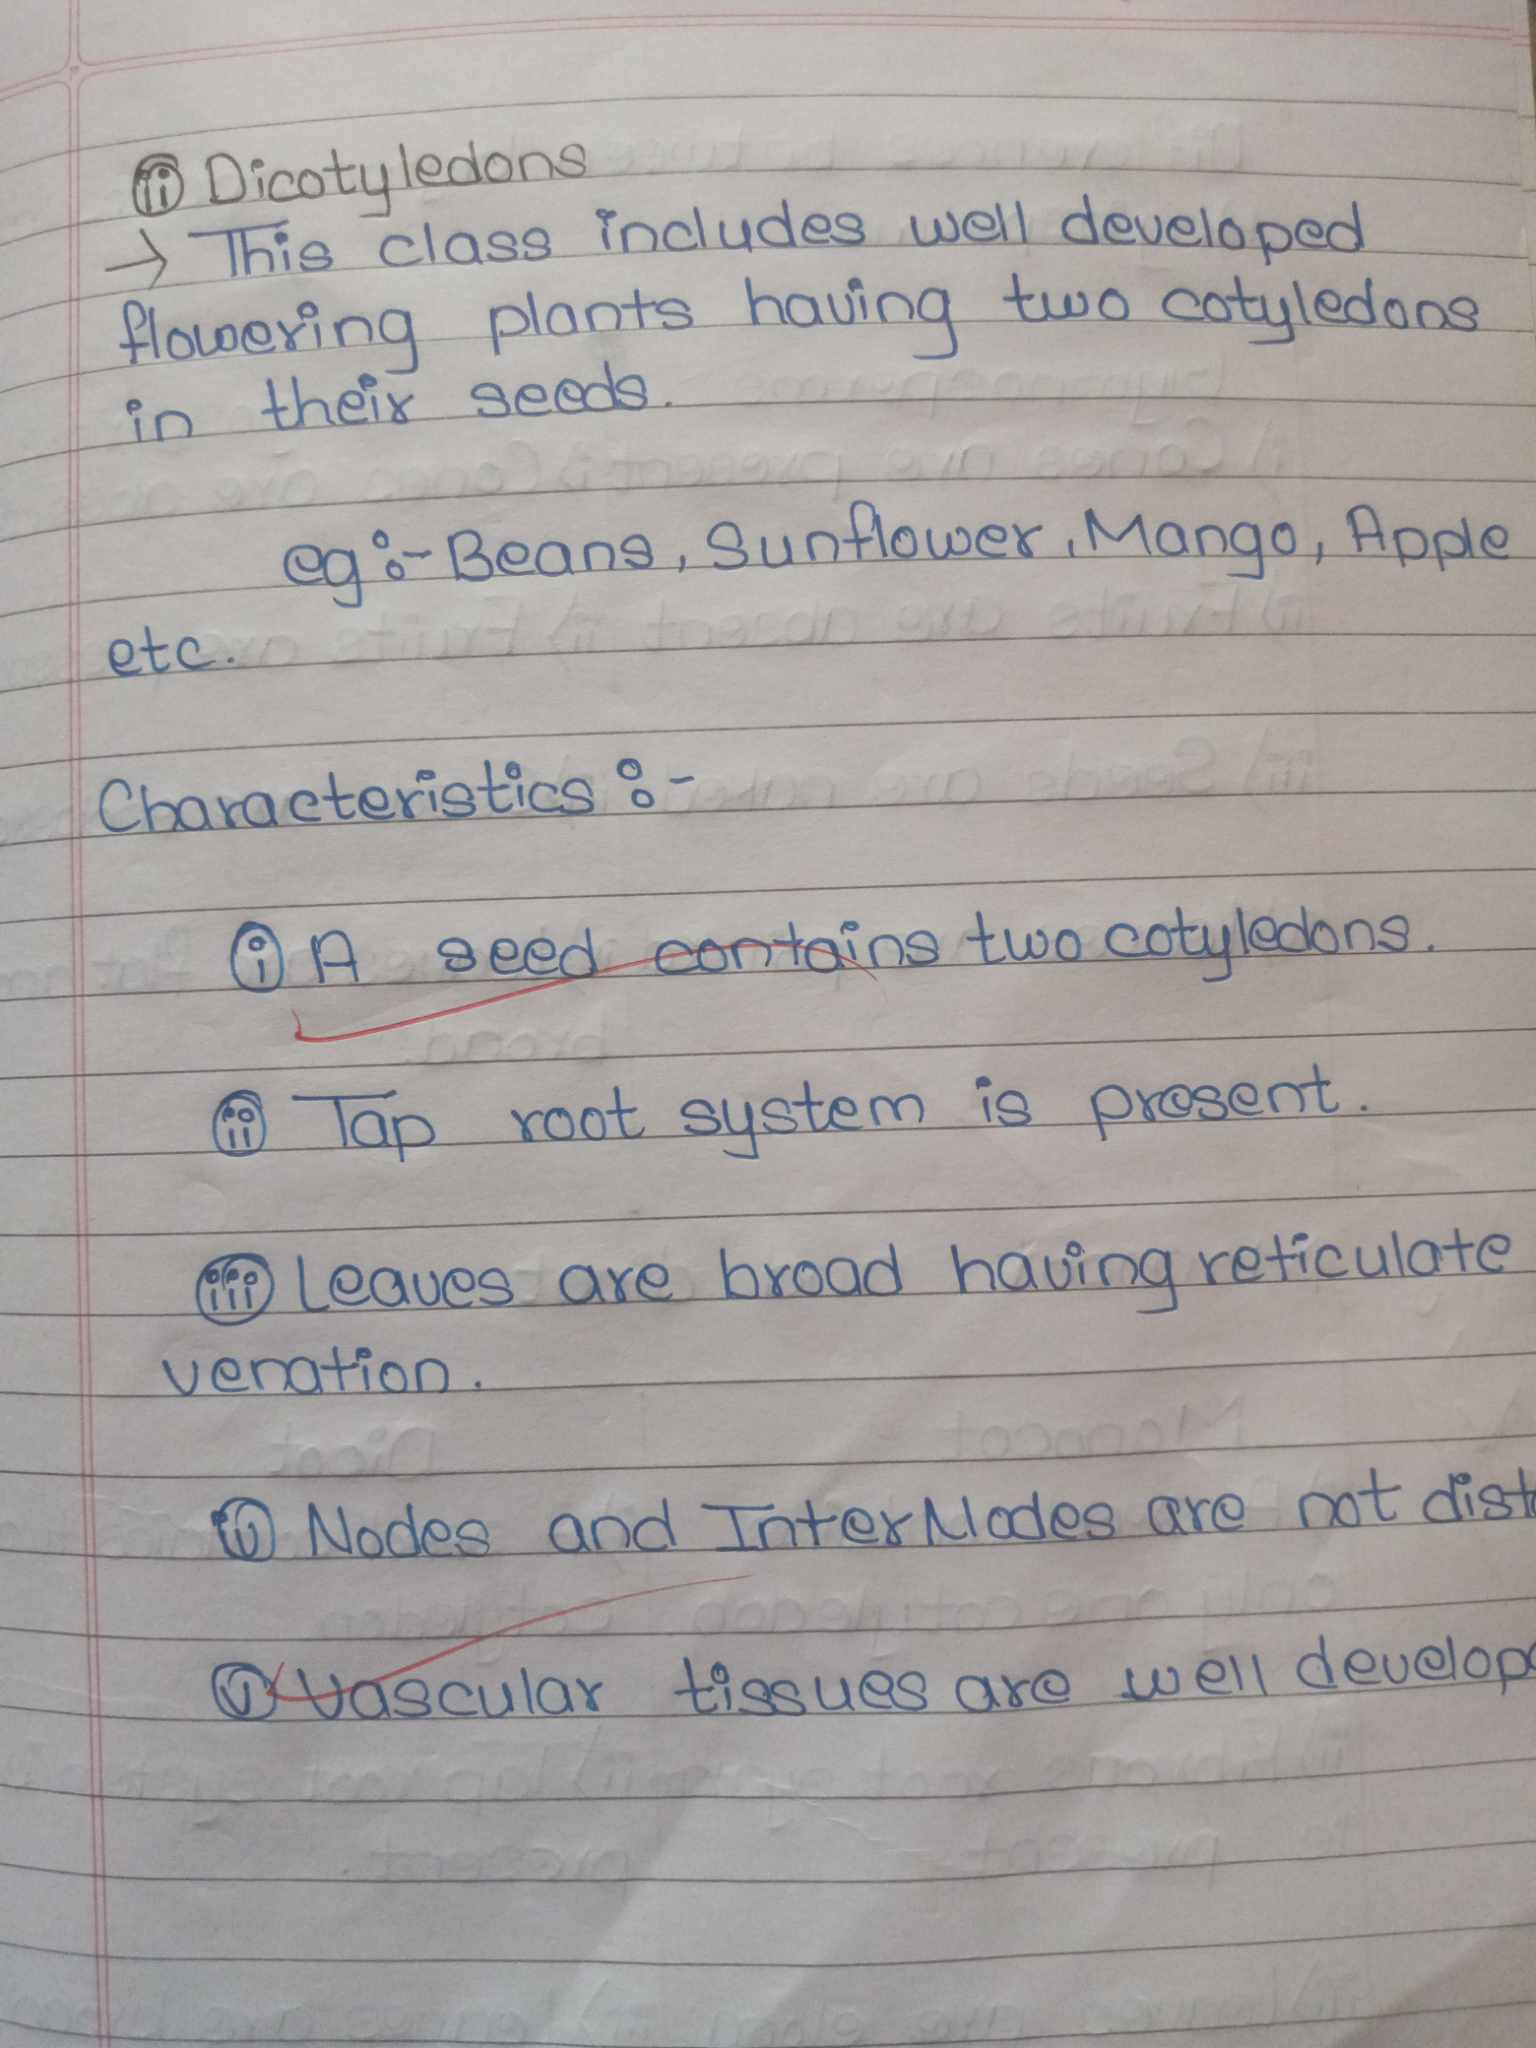 ii Dicotyledons
→ This class includes well developed
flowering plants having two cotyledons
in their seeds.
eg:- Beans, Sunflower, Mango, Apple
etc.
Characteristics :-
i A seed contains two cotyledons.
ii Tap root system is present.
iii Leaves are broad having reticulate
venation.
iv Nodes and InterNodes are not dist
v Vascular tissues are well develope